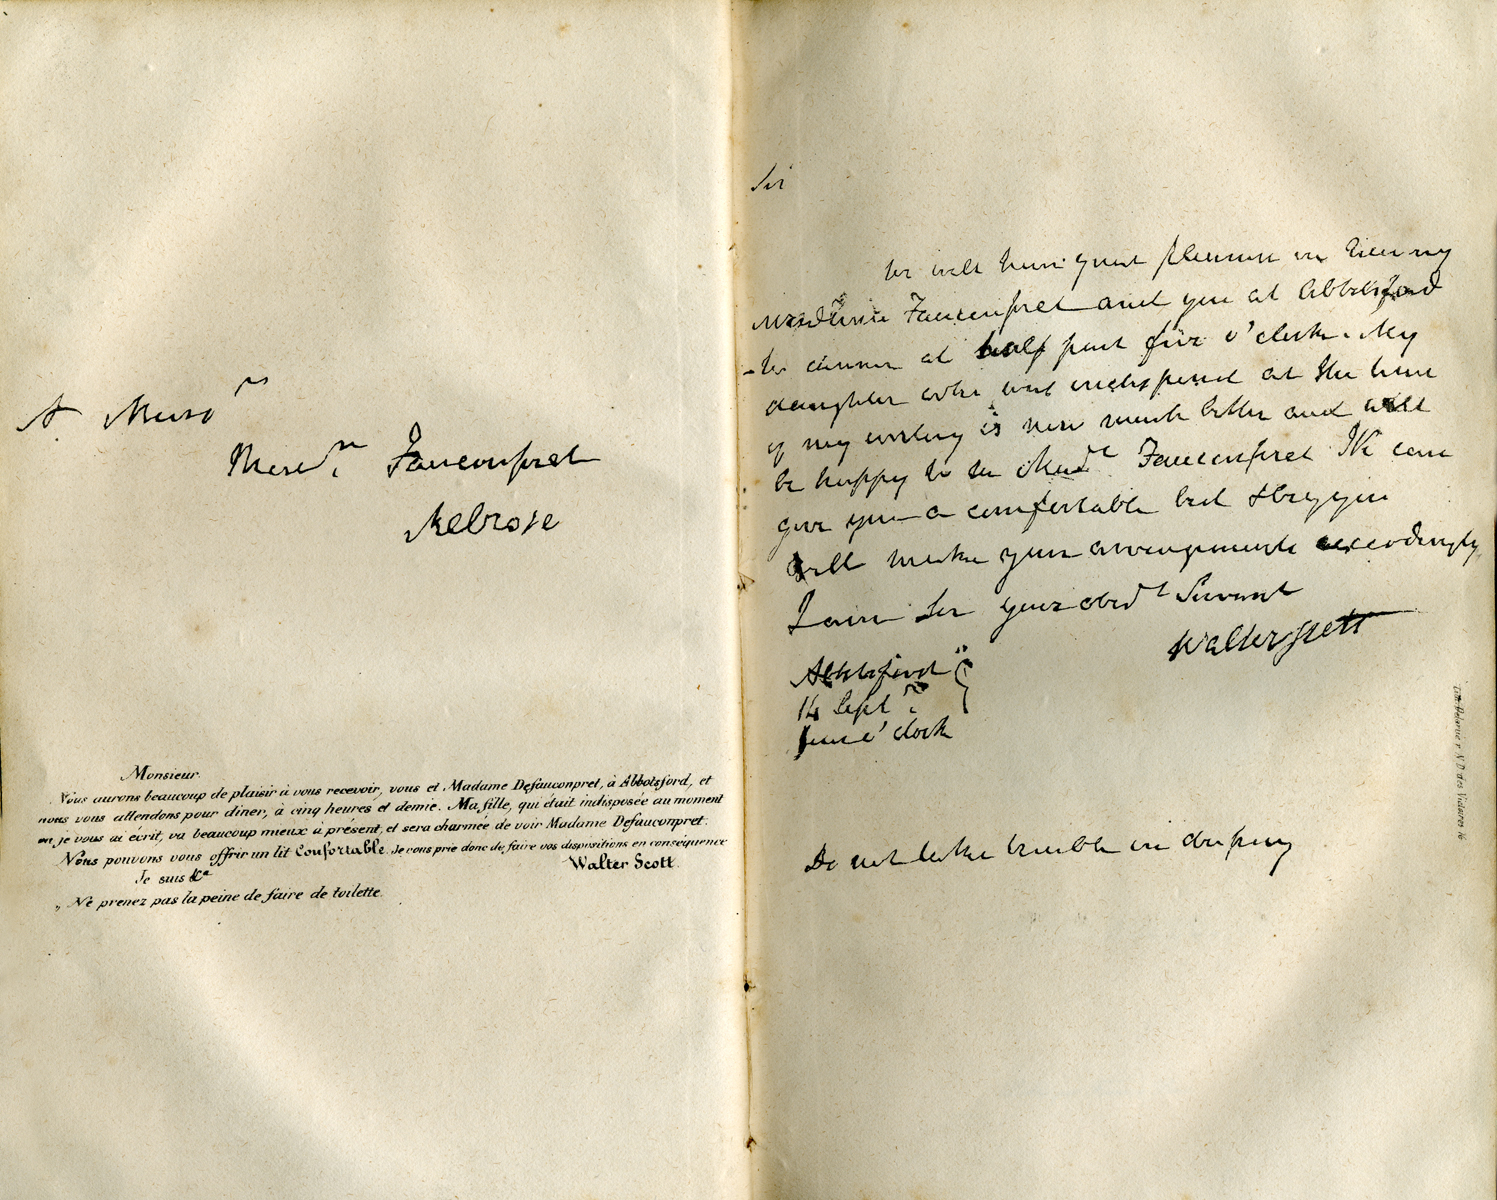 A Monsr
Fauconpret
Melrose
Monsieur.
Nous aurons beaucoup de plaisir à vous recevoir, vous et Madame Defauconpret, à Abbotsford, et
nous vous attendons pour dîner, à cinq heures et demie. Ma fille, qui était indisposée au moment
où je vous ai écrit, va beaucoup mieux à présent, et sera charmée de voir Madame Defauconpret.
Nous pouvons vous offrir un lit Confortable. Je vous prie donc de faire vos dispositions en conséquence
Je suis &ca
Walter Scott.
„ Ne prenez pas la peine de faire de toilette.
Sir
We will have great pleasure in seeing
Madame Fauconpret and you at Abbotsford
to dinner at half past five o'clock. My
daughter who was indisposed at the time
of my writing is now much better and will
be happy to see Madᵉ Fauconpret We can
give you a comfortable bed & beg you
will make your arrangements accordingly
I am Sir your obedt Servant
Walter Scott
Abbotsford
14 Septr
four o'clock
Do not take trouble in dressing